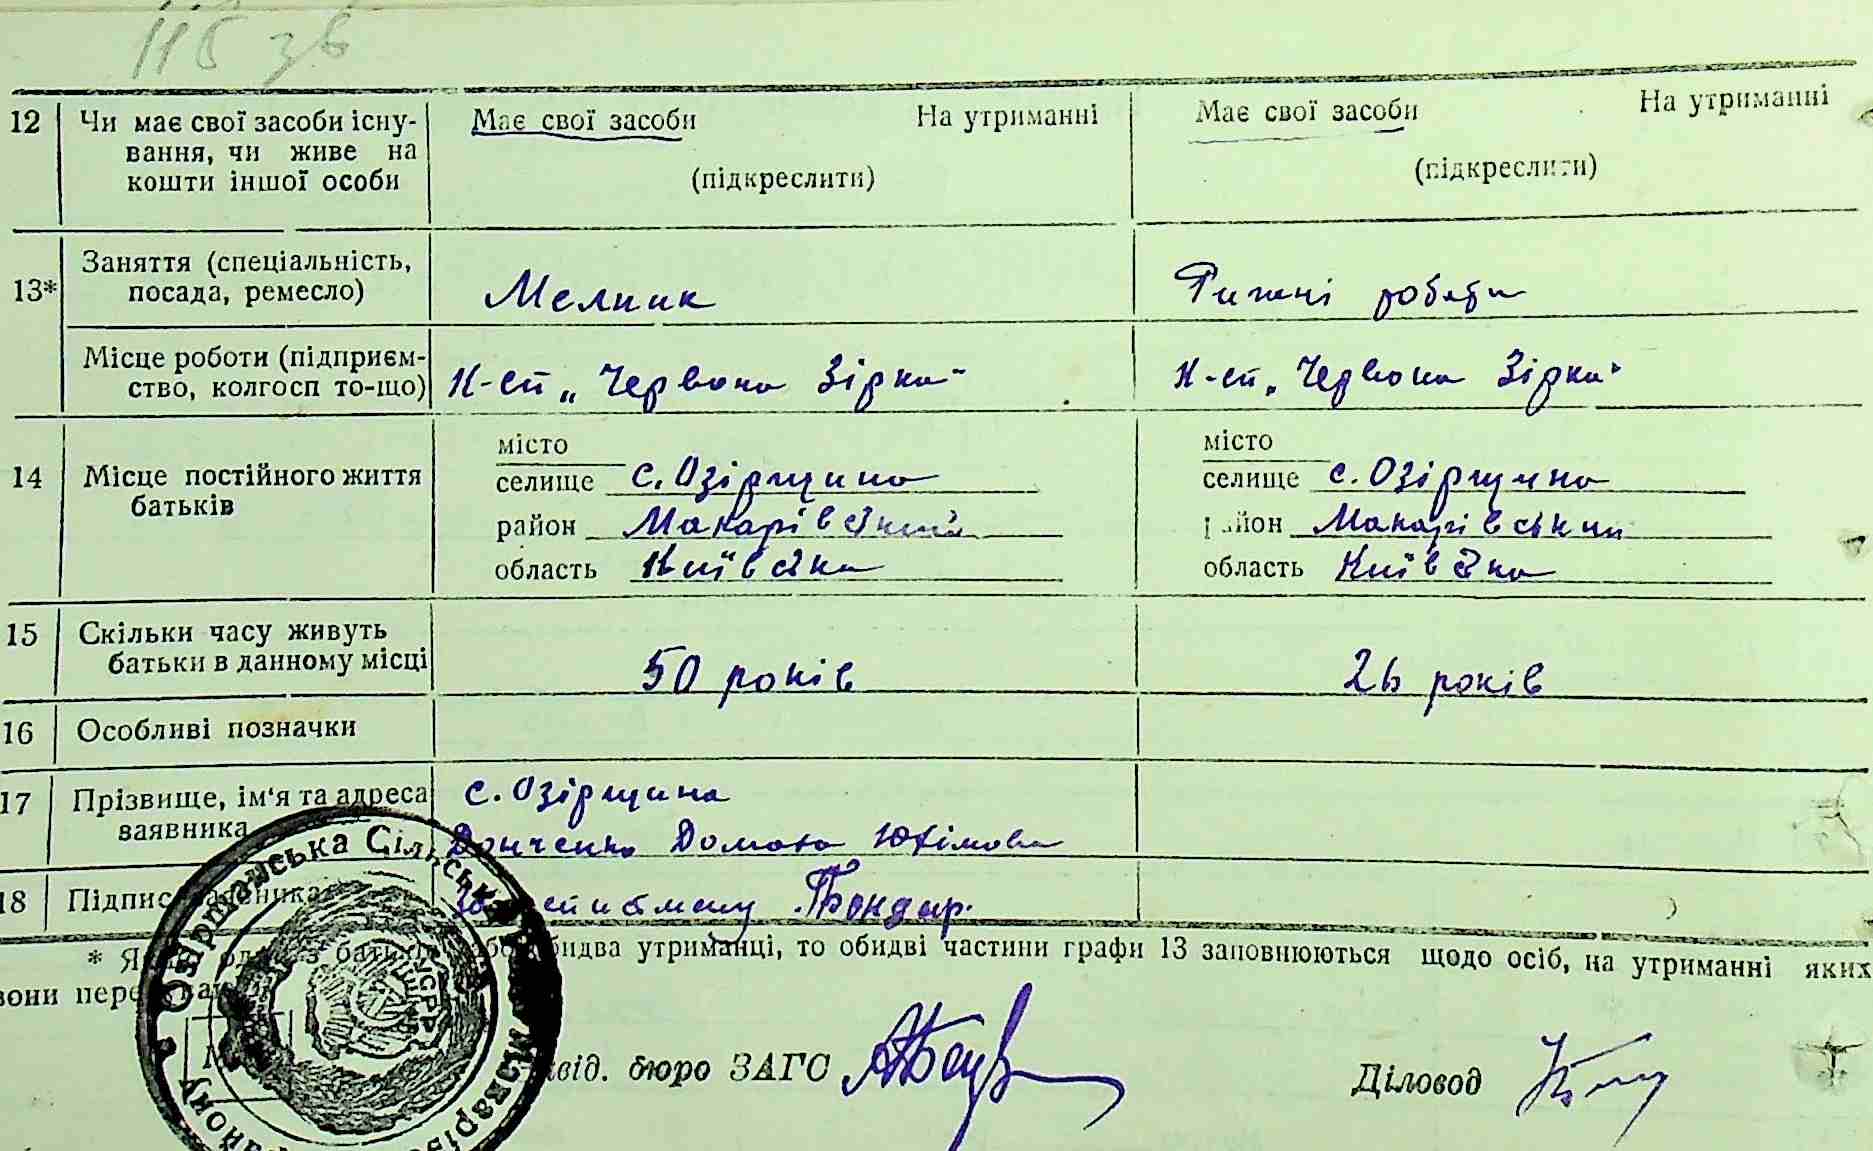 115 зв
12 Чи має свої засоби існу- Має свої засоби На утриманні Має свої засоби На утриманні
вання, чи живе на
кошти іншої особи (підкреслити) (підкреслити)
Заняття (спеціальність,
13* посада, ремесло) Мелник Рижні роботи
Місце роботи (підприєм-
ство, колгосп то-що) К-сп „Червона Зірка" К-сп „Червона Зірка"
місто місто
14 Місце постійного життя селище с. Озірщина селище с. Озірщина
батьків
район Макарівський район Макарівський
область Київська область Київська
15 Скільки часу живуть
батьки в данному місці 50 років 26 років
16 Особливі позначки
17 Прізвище, ім'я та адреса с. Озірщина
заявника Донченко Домаха Юхімовна
18 Підпис заявника Бондар.
* Як обидва утриманці, то обидві частини графи 13 заповнюються щодо осіб, на утриманні яких
вони
Озірщанська Сільська
УСРР
від. бюро ЗАГС Діловод